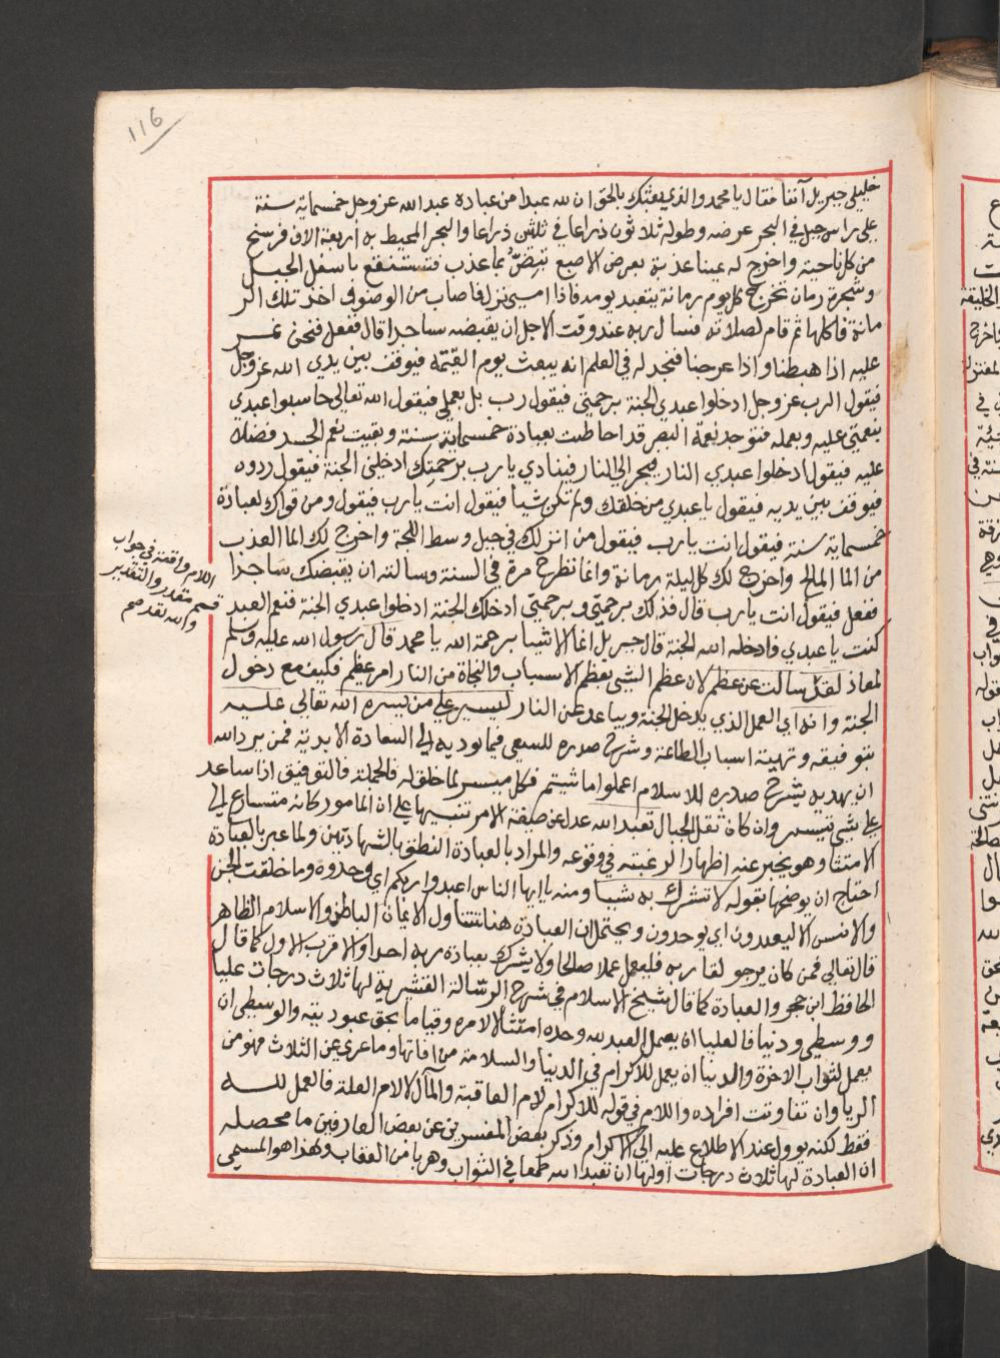 116
خليلي جبريل آنفا فقال يا محمد والذي بعثك بالحق ان لله عبدا من عباده عبد الله عز وجل خمسماية سنة
على راس جبل في البحر عرضه وطوله ثلاثون ذراعا في ثلثين ذراعا والبحر المحيط به اربعة الاف فرسخ
من كل ناحية واخرج له عينا عذبة بعرض الاصبع تبض بما عذب فتستنقع باسفل الجبل
وشجرة رمان تخرج كل يوم رمانة يتعبد يومه فاذا امسى نزل فاصاب من الوضوء واخذ تلك الر
مانة فاكلها ثم قام لصلاته فسال ربه عند وقت الاجل ان يقبضه ساجدا قال ففعل فنحن نمر
عليه اذا هبطنا واذا عرجنا فنجد له في العلم انه يبعث يوم القيمة فيوقف بين يدي الله عز وجل
فيقول الرب عز وجل ادخلوا عبدي الجنة برحمتي فيقول رب بل بعملي فيقول الله تعالى حاسبوا عبدي
بنعمتي عليه وبعمله فتوجد نعمة البصر قد احاطت بعبادة خمسماية سنة وبقيت نعم الجسد فضلا
عليه فيقول ادخلوا عبدي النار فيجر الى النار فينادي يا رب برحمتك ادخلني الجنة فيقول ردوه
فيوقف بين يديه فيقول يا عبدي من خلقك ولم تكن شيا فيقول انت يا رب فيقول ومن قواك لعبادة
خمسماية سنة فيقول انت يا رب فيقول من انزلك في جبل وسط اللجة واخرج لك الما العذب
من الما المالح واخرج لك كل ليلة رمانة وانما تطرح مرة في السنة وسالته ان يقبضك ساجدا
ففعل فيقول انت يا رب قال فذلك برحمتي وبرحمتي ادخلك الجنة ادخلوا عبدي الجنة فنعم العبد
كنت يا عبدي فادخله الله الجنة قال جبريل انما الاشيا برحمة الله يا محمد قال رسول الله عليه وسلم
لمعاذ لقد سالت عن عظيم لان عظم الشي بعظم الاسباب والنجاة من النار امر عظيم فكيف مع دخول
الجنة وانه اي العمل الذي يدخل الجنة ويباعد عن النار ليسير على من يسره الله تعالى عليه
بتوفيقه وتهيئة اسباب الطاعة وشرح صدره للسعي فيما يوديه الى السعادة الابدية فمن يرد الله
ان يهديه يشرح صدره للاسلام اعملوا ما شيتم فكل ميسر لما خلق له فالجملة فالتوفيق اذا ساعد
على شي تيسر وان كان نقل الجبال تعبد الله عدل عن صيغة الامر تنبيها على ان المامور كانه متسارع الى
الامتثال وهو يخبر عنه اظهارا لرغبته في وقوعه والمراد بالعبادة النطق بالشهادتين ولما عبر بالعبادة
احتاج ان يوضحها بقوله لا تشرك به شيا ومنه يا ايها الناس اعبدوا ربكم اي وحدوه وما خلقت الجن
والانس الا ليعبدون اي يوحدون ويحتمل ان العبادة هنا تتناول الايمان الباطن والاسلام الظاهر
قال تعالى فمن كان يرجو لقا ربه فليعمل عملا صالحا ولا يشرك بعبادة ربه احدا والاقرب الاول كما قال
الحافظ ابن حجر والعبادة كما قال شيخ الاسلام في شرح الرسالة القشيرية لها ثلاث درجات عليا
ووسطى ودنيا فالعليا ان يعمل العبد لله وحده امتثالا لامره وقياما بحق عبوديته والوسطى ان
يعمل لثواب الاخرة والدنيا ان يعمل للاكرام في الدنيا والسلامة من افاتها وما عري عن الثلاث فهو من
الريا وان تفاوتت افراده واللام في قوله للاكرام لام العاقبة والمآل لا لام العلة فالعمل لله
فقط لكنه يوول عند الاطلاع عليه الى الاكرام وذكر بعض المفسرين عن بعض العارفين ما محصله
ان العبادة لها ثلاث درجات اولها ان تعبد الله طمعا في الثواب وهربا من العقاب وهذا هو المسمى
اللام واقعة في جواب
قسم مقدر والتقدير
والله لقد صح